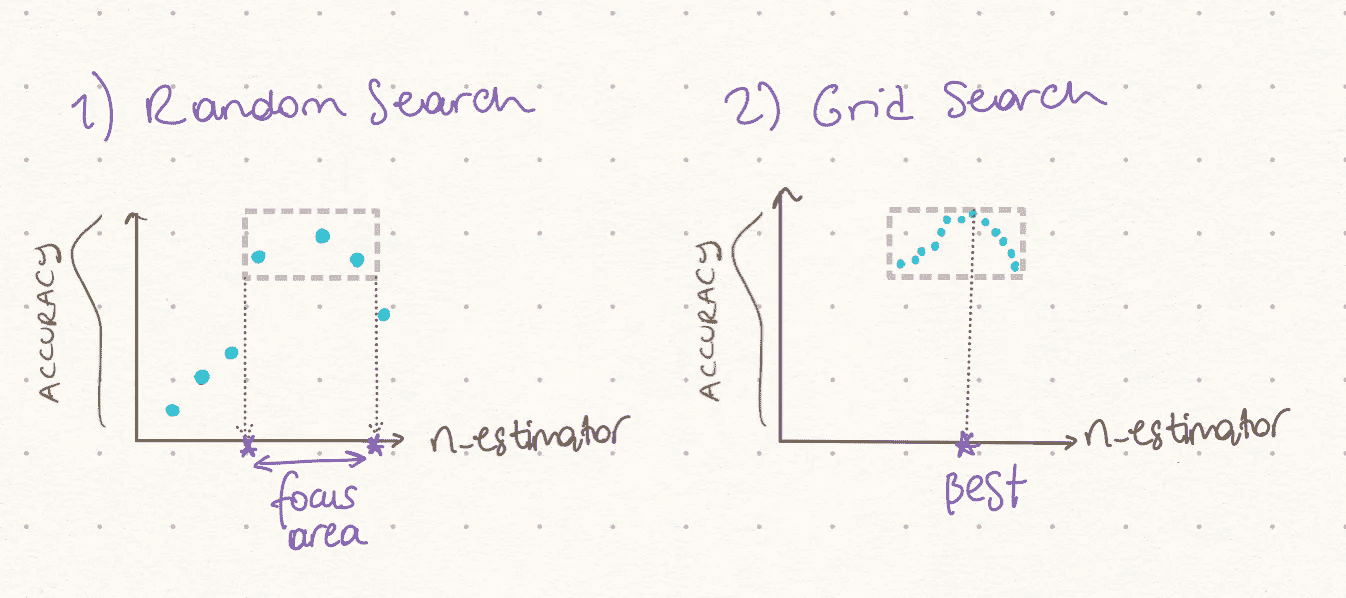 1) Random Search
ACCURACY
n-estimator
focus
area
2) Grid Search
ACCURACY
n-estimator
Best